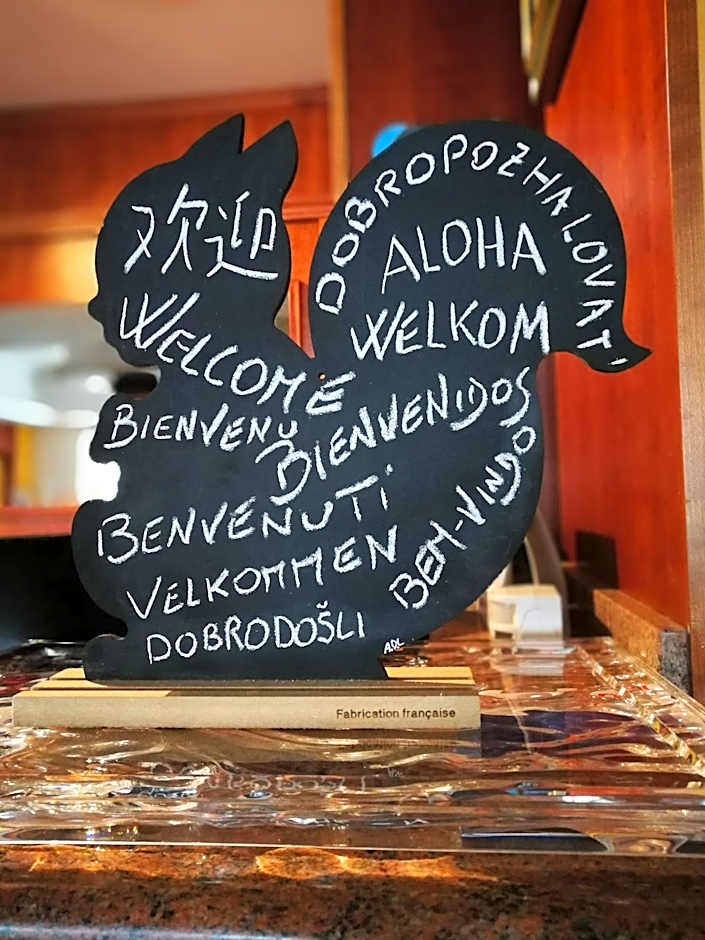 欢迎
DOBROPOZHALOVAT'
ALOHA
WELKOM
WELCOME
BIENVENU
BIENVENIDOS
BENVENUTI
BEM-VINDO
VELKOMMEN
DOBRODOŠLI
ADL
Fabrication française